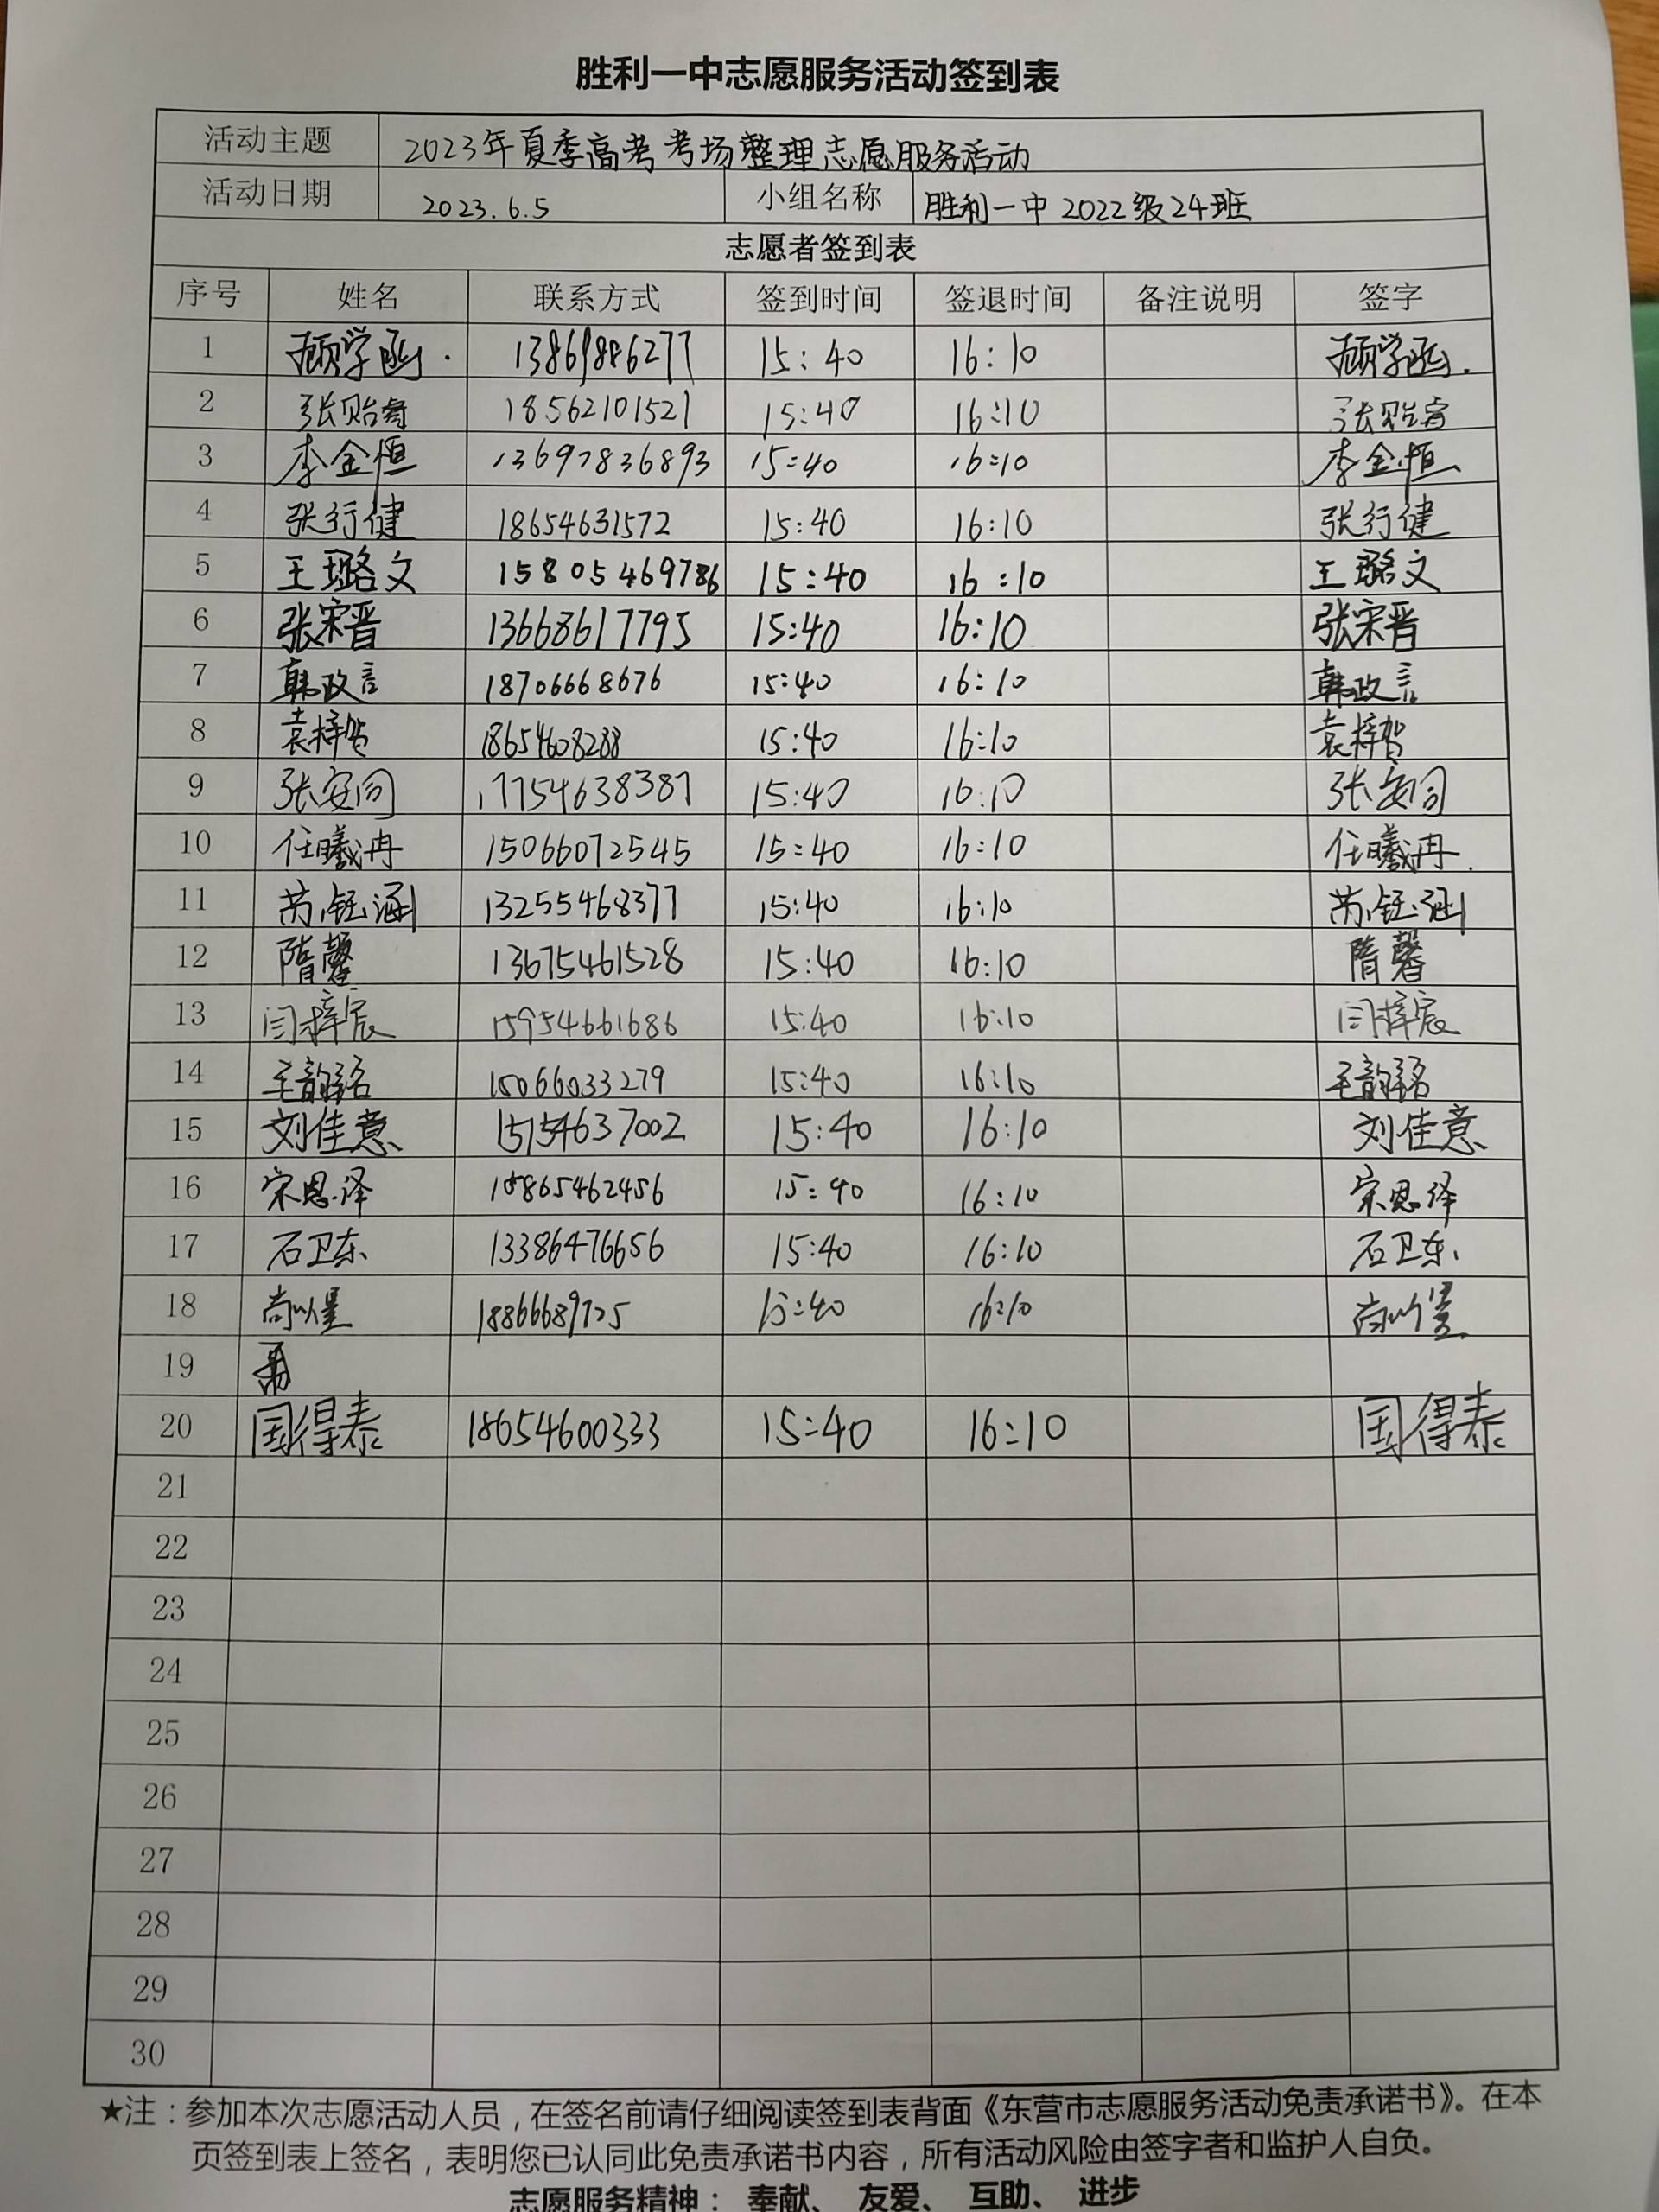 胜利一中志愿服务活动签到表
活动主题 2023年夏季高考考场整理志愿服务活动
活动日期 2023.6.5 小组名称 胜利一中2022级24班
志愿者签到表
序号 姓名 联系方式 签到时间 签退时间 备注说明 签字
1 顾学函. 13869886277 15:40 16:10 顾学函.
2 张贻睿 18562101521 15:40 16:10 张贻睿
3 李金恒 13697836893 15:40 16:10 李金恒
4 张行健 18654631572 15:40 16:10 张行健
5 王璐文 15805469786 15:40 16:10 王璐文
6 张宋晋 13668617795 15:40 16:10 张宋晋
7 韩政言 18706668676 15:40 16:10 韩政言
8 袁梓贺 18654608288 15:40 16:10 袁梓贺
9 张安同 17754638387 15:40 16:10 张安同
10 任曦冉 15066072545 15:40 16:10 任曦冉.
11 芮钰涵 13255468377 15:40 16:10 芮钰涵
12 隋馨 13675461528 15:40 16:10 隋馨
13 闫梓宸 15954661686 15:40 16:10 闫梓宸
14 王韵铭 15066033279 15:40 16:10 王韵铭
15 刘佳意 15154637002 15:40 16:10 刘佳意
16 宋恩泽 15865462456 15:40 16:10 宋恩泽
17 石卫东 13386476656 15:40 16:10 石卫东
18 尚以星 18866689725 15:40 16:10
19
20 国得泰 18654600333 15:40 16:10 国得泰
21
22
23
24
25
26
27
28
29
30
★注：参加本次志愿活动人员，在签名前请仔细阅读签到表背面《东营市志愿服务活动免责承诺书》。在本
页签到表上签名，表明您已认同此免责承诺书内容，所有活动风险由签字者和监护人自负。
志愿服务精神： 奉献、 友爱、 互助、 进步